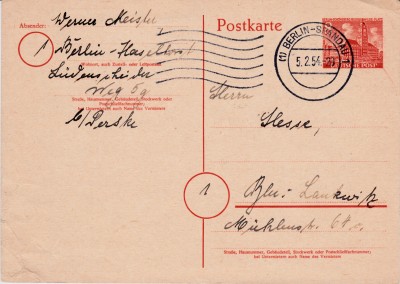 Absender:
Werner Meister
1
Berlin-Haselhorst
Wohnort, auch Zustell- oder Leitpostamt
Lüdenscheider
Weg 5g
Straße, Hausnummer, Gebäudeteil, Stockwerk oder
Postschließfachnummer;
bei Untermietern auch Name des Vermieters
b/Perske
Postkarte
(1) BERLIN-SPANDAU 1
5.2.54
Herrn
Hesse,
1
Bln.- Lankwitz
Mühlenstr. 64
Straße, Hausnummer, Gebäudeteil, Stockwerk oder Postschließfachnummer;
bei Untermietern auch Name des Vermieters